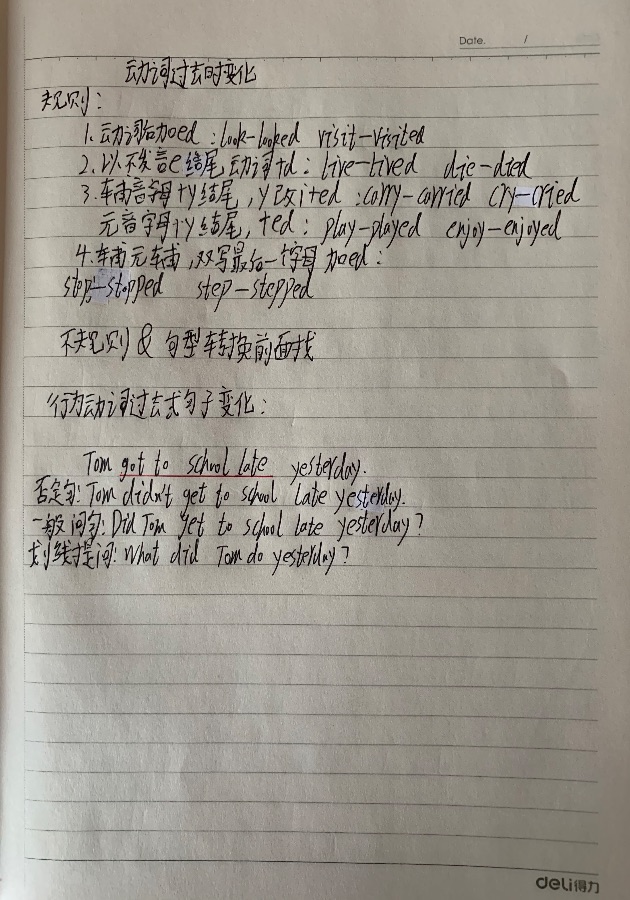 Date. /
动词过去时变化
规则:
1.动词后加ed:look-looked visit-visited
2.以不发音e结尾动词+d:live-lived die-died
3.辅音字母+y结尾,y改i+ed:carry-carried cry-cried
元音字母+y结尾,+ed:play-played enjoy-enjoyed
4.辅元辅,双写最后一个字母加ed:
stop-stopped step-stepped
不规则&句型转换前面找
行为动词过去式句子变化:
Tom got to school late yesterday.
否定句:Tom didn't get to school late yesterday.
一般问句:Did Tom get to school late yesterday?
划线提问:What did Tom do yesterday?
deli得力